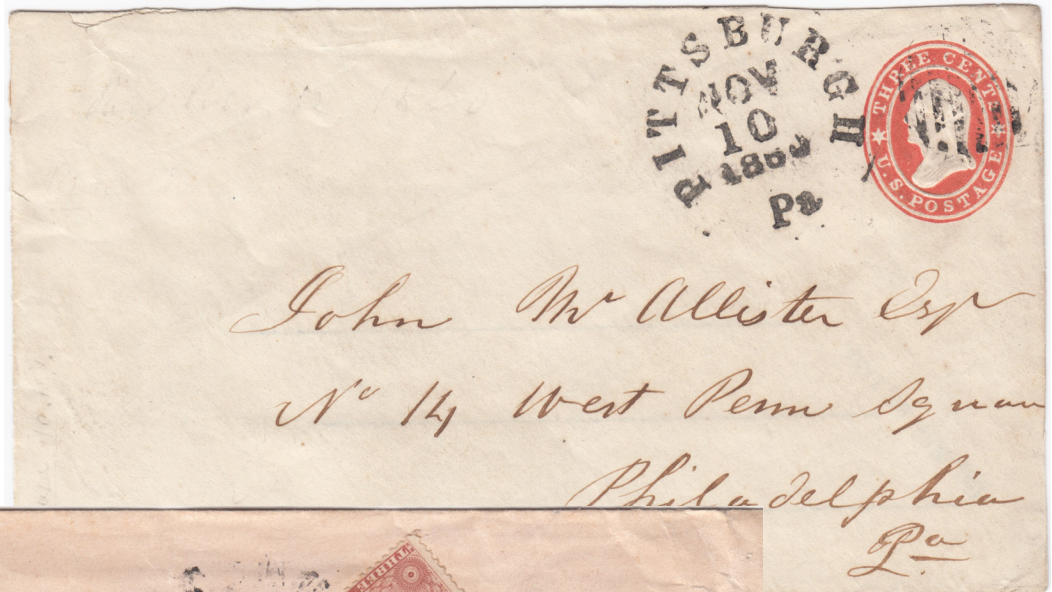 PITTSBURGH
NOV
10
Pa
THREE CENTS
U.S. POSTAGE
John McAllister Esqr
No 14 West Penn Square
Philadelphia
Pa
THREE